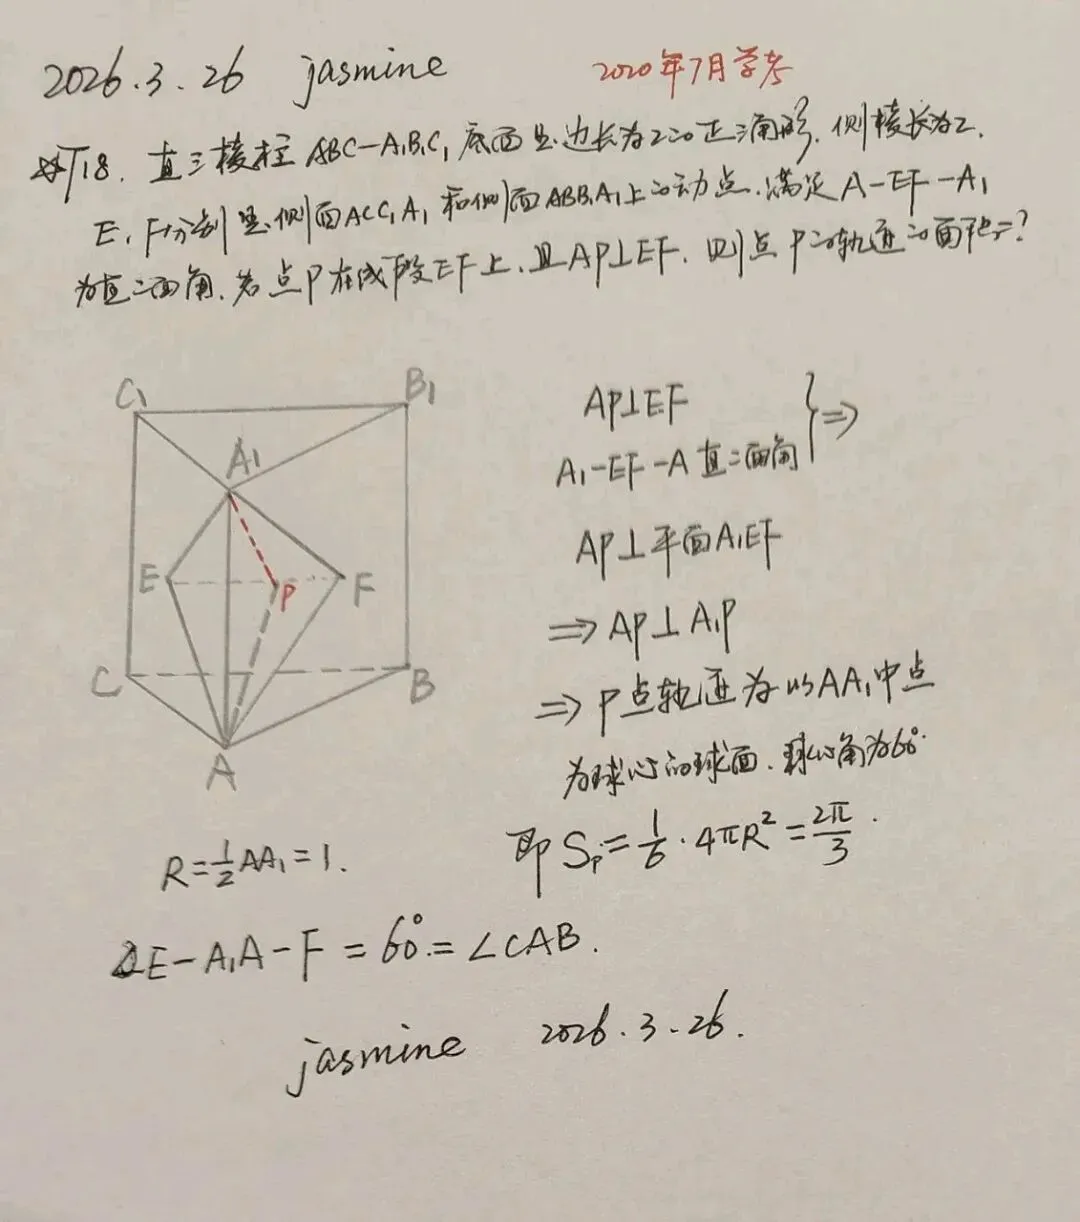 2026.3.26 jasmine 2020年7月学考
T18. 直三棱柱ABC-A₁B₁C₁底面是边长为2的正三角形.侧棱长为2.
E、F分别是侧面ACC₁A₁和侧面ABB₁A₁上的动点.满足A-EF-A₁
为直二面角.若点P在线段EF上.且AP⊥EF.则点P的轨迹的面积是?
C₁ B₁
A₁
E P F
C B
A
AP⊥EF
A₁-EF-A直二面角 } ⇒
AP⊥平面A₁EF
⇒ AP⊥A₁P
⇒ P点轨迹为以AA₁中点
为球心的球面.球心角为60°.
即Sₚ=1/6·4πR²=2π/3.
R=1/2AA₁=1.
E-A₁A-F=60°=∠CAB.
jasmine 2026.3.26.